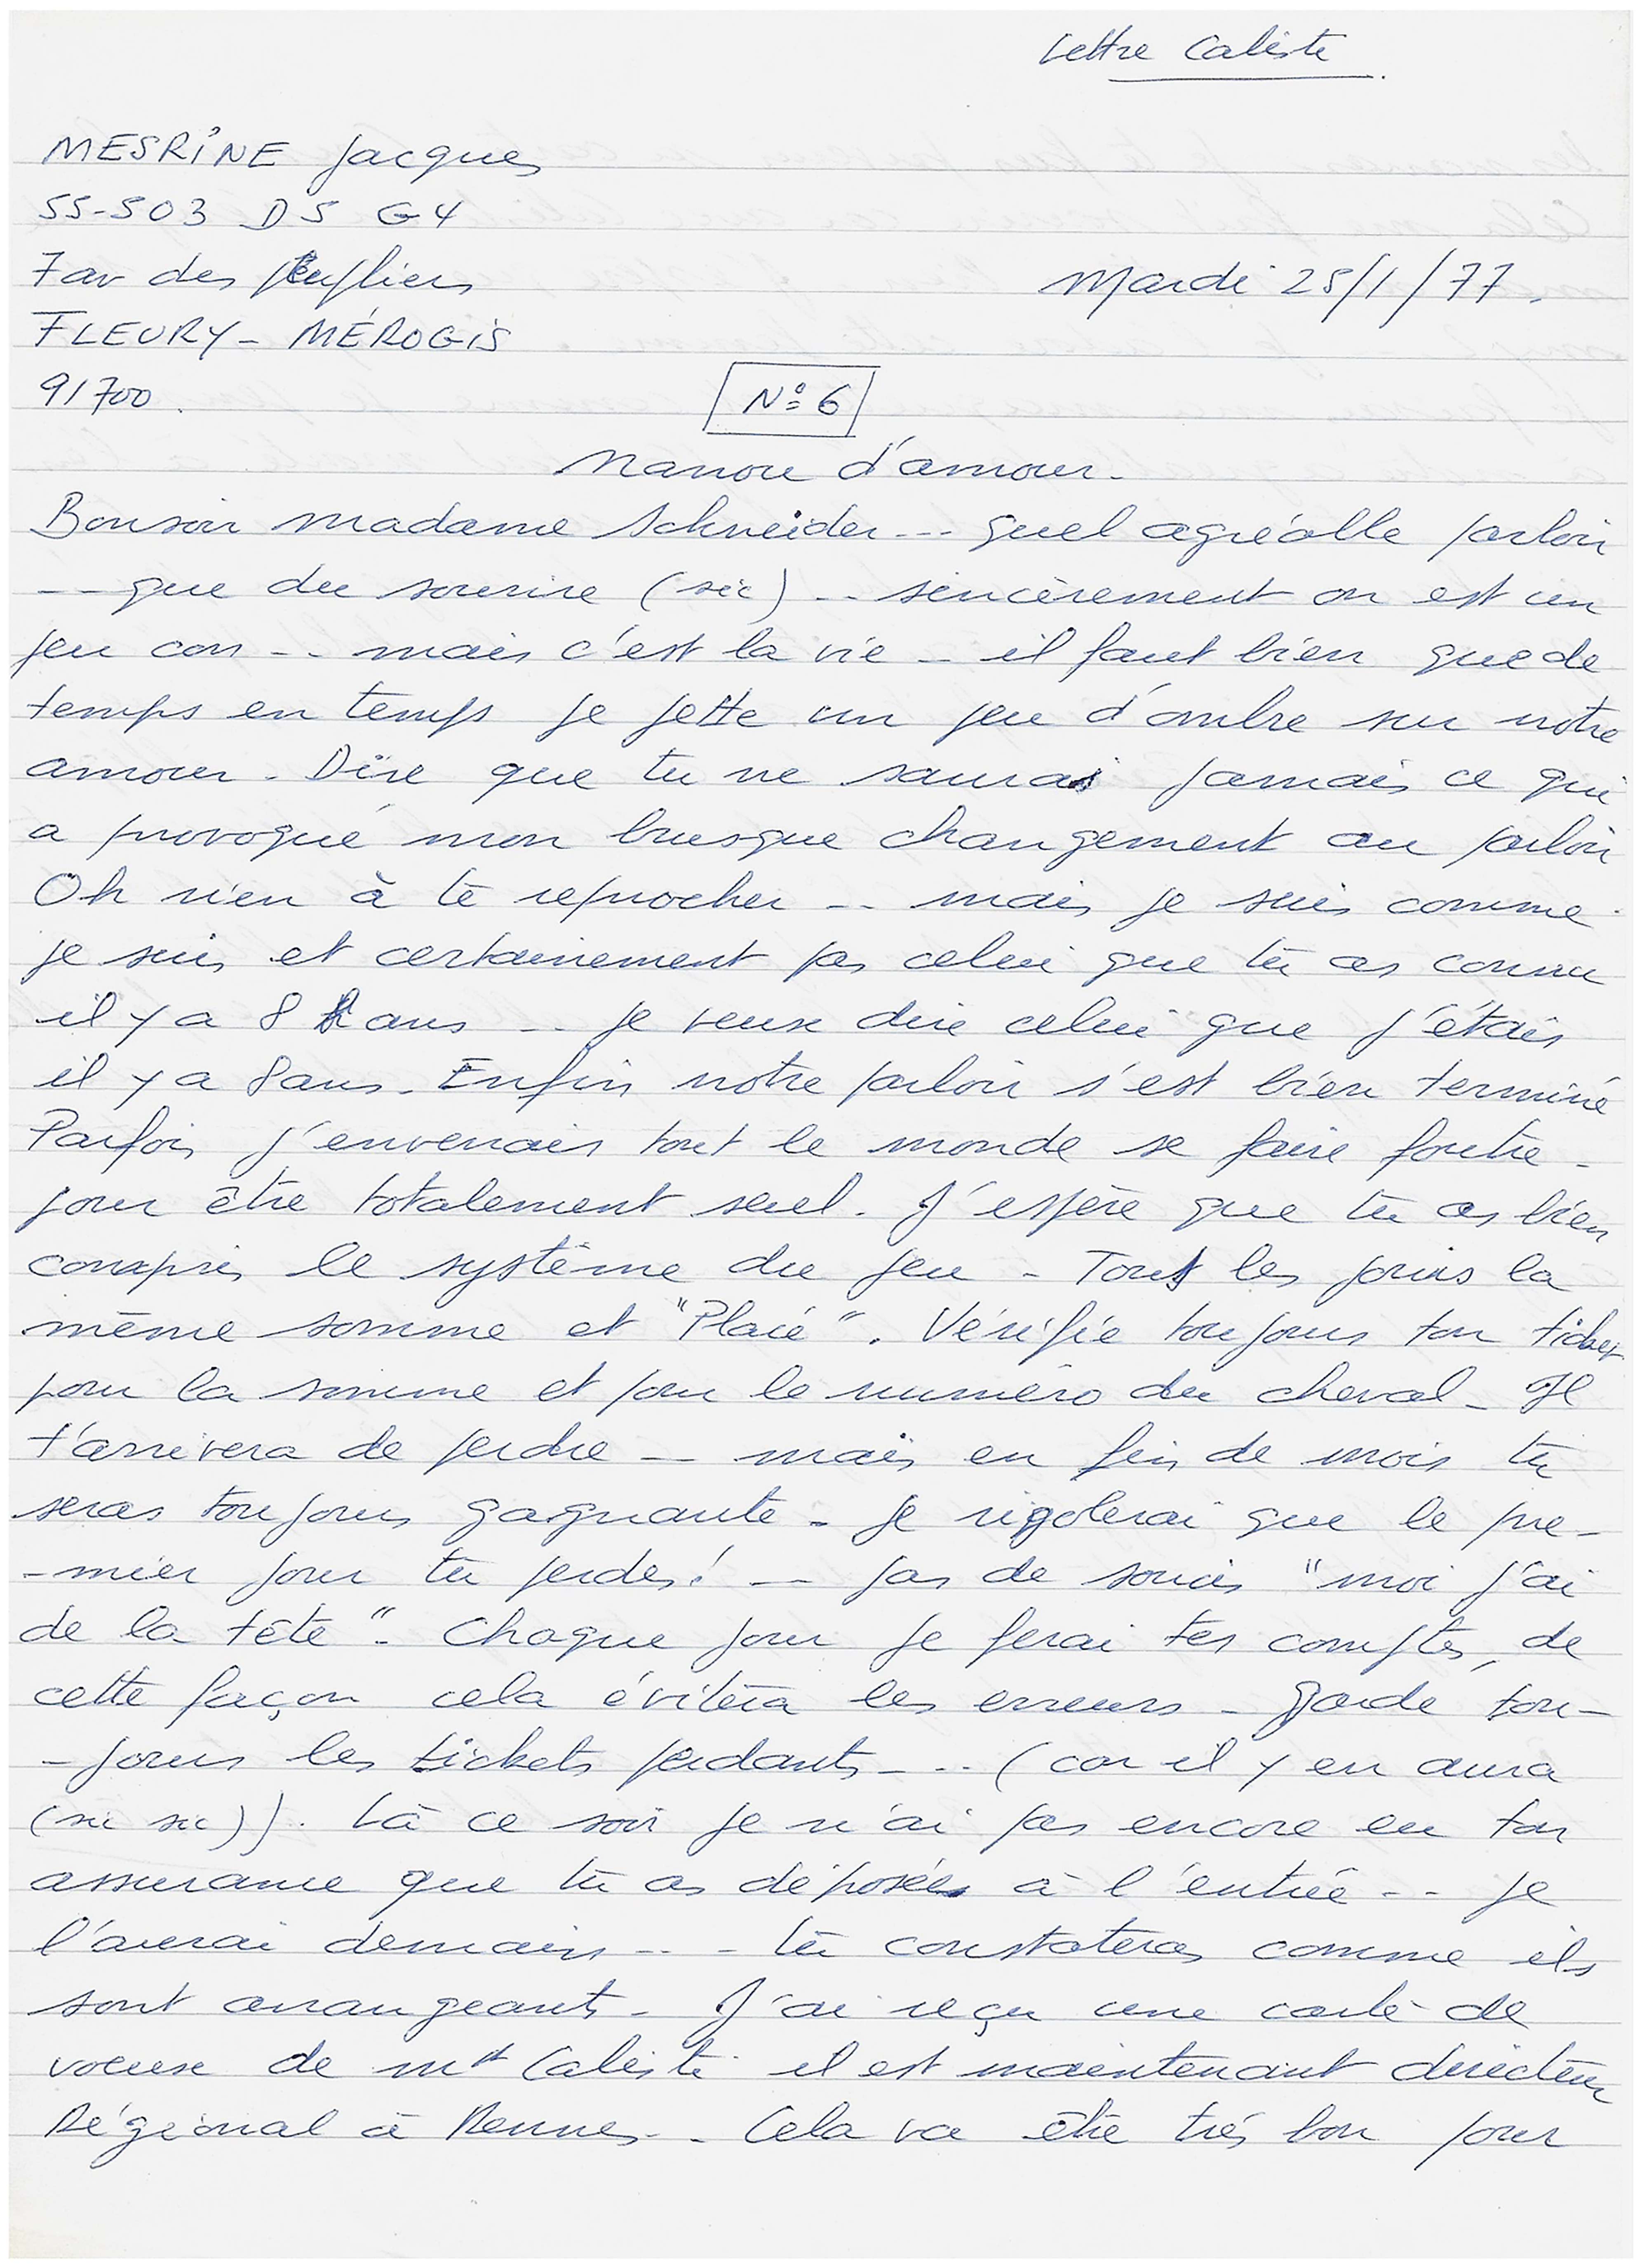 Lettre Caliste
MESRINE Jacques
55-503 D5 G4
7 av des Peupliers
Mardi 25/1/77.
FLEURY-MÉROGIS
91700.
N° 6
Nanou d'amour.
Bonsoir madame Schneider... quel agréable parloir
-- que du sourire (sic) .. sincèrement on est un
peu con -.. mais c'est la vie - il faut bien que de
temps en temps je jette un peu d'ombre sur notre
amour. Dire que tu ne sauras jamais ce qui
a provoqué mon brusque changement au parloir
Oh rien à te reprocher -.. mais je suis comme
je suis et certainement pas celui que tu as connu
il y a 8 ans -.. je veux dire celui que j'étais
il y a 8 ans. Enfin notre parloir s'est bien terminé
Parfois j'enverrais tout le monde se faire foutre -
pour être totalement seul. J'espère que tu as bien
compris le système du jeu - Tous les jours la
même somme et "Placé". Vérifie toujours ton ticket
pour la somme et pour le numéro du cheval - Il
t'arrivera de perdre -- mais en fin de mois tu
seras toujours gagnante - je rigolerai que le pre-
-mier jour tu perdes! -- pas de soucis "moi j'ai
de la tête". Chaque jour je ferai tes comptes, de
cette façon cela évitera les erreurs - garde tou-
-jours les tickets perdants -.. (car il y en aura
(sic sic)). Là ce soir je n'ai pas encore eu ton
assurance que tu as déposée à l'entrée -.. je
l'aurai demain -.. - tu constateras comme ils
sont arrangeants - J'ai reçu une carte de
voeux de Mr Caliste il est maintenant directeur
Régional à Rennes -. Cela va être très bon pour